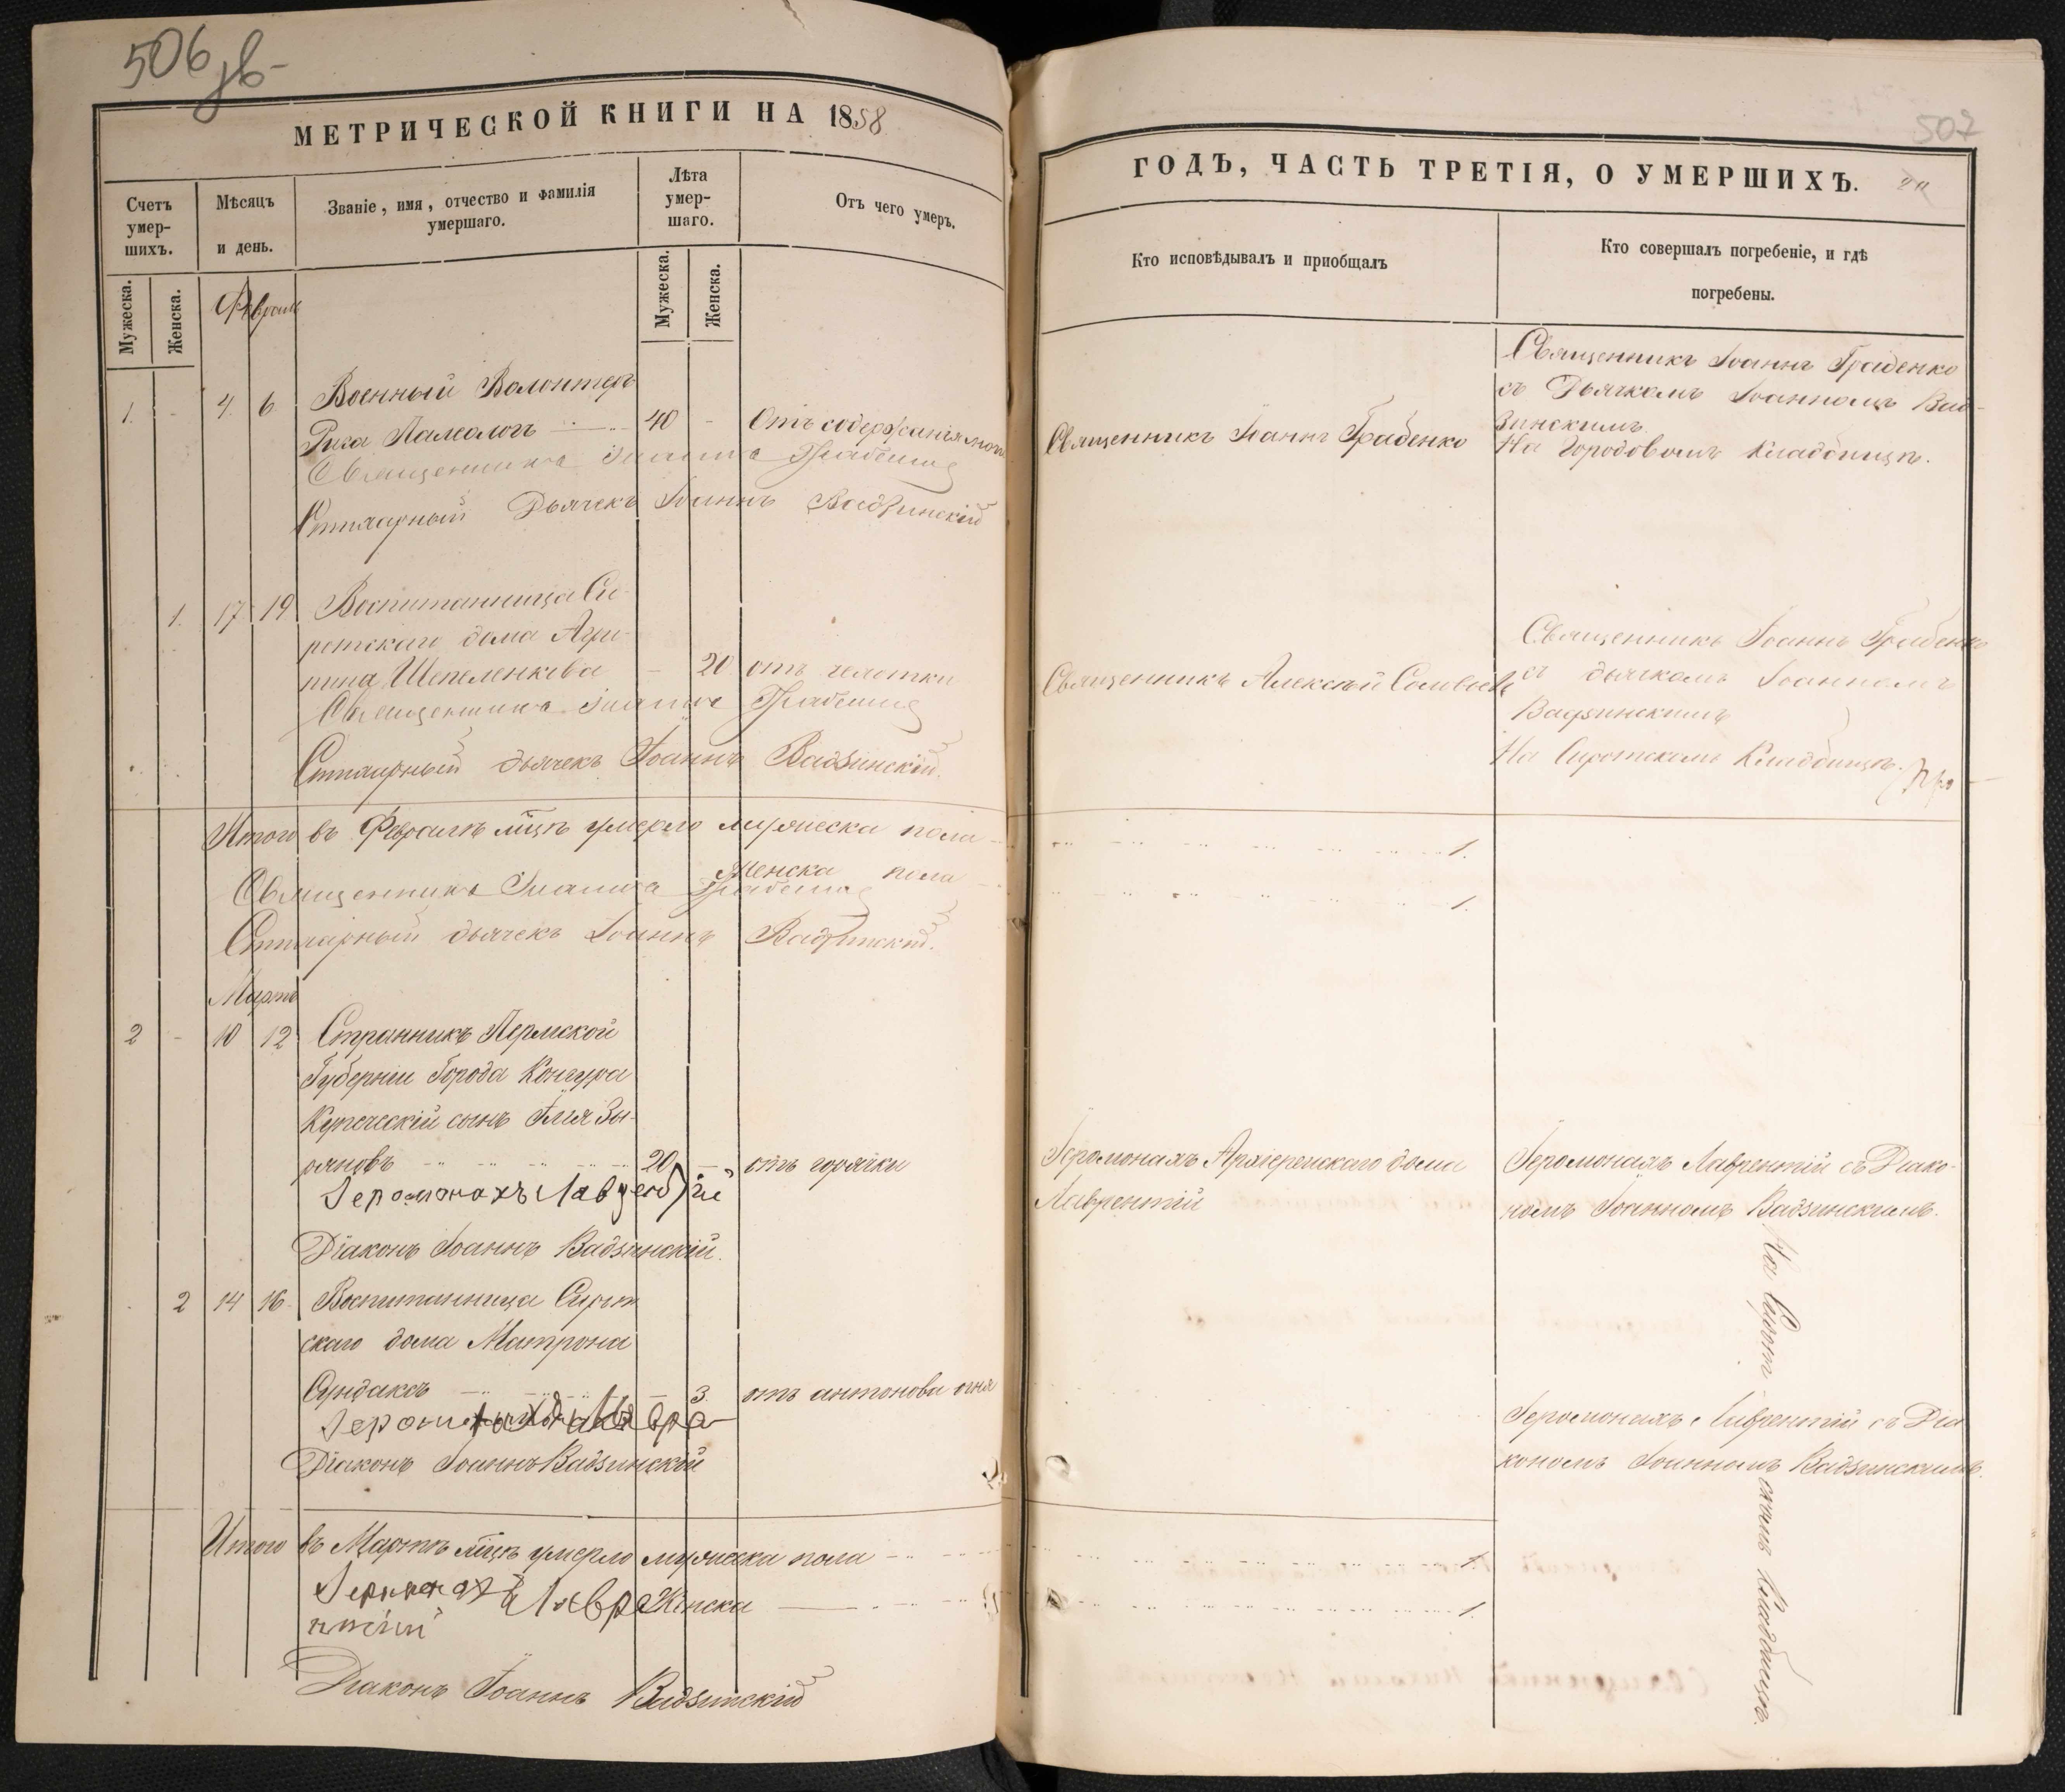 506 зв-
МЕТРИЧЕСКОЙ КНИГИ НА 1858
Счетъ умер-шихъ.
Мѣсяцъ и день.
Званіе, имя, отчество и фамилія умершаго.
Лѣта умер-шаго.
Отъ чего умеръ.
Мужеска.
Женска.
Мужеска.
Женска.
Февраль
1. - 4. 6 Военный Волонтеръ
Рига Палеологъ 40 - Отъ содержанія мочи
Священникъ Іоаннъ Грабенко
Стихарный Дьячекъ Іоаннъ Вадзинскій
1. 17 19 Воспитанница Си-
ротскаго дома Агри-
пина Шепеленкова - 20 отъ чахотки
Священникъ Іоаннъ Грабенко
Стихарный дьячекъ Іоаннъ Вадзинскій.
Итого въ Февралѣ мцѣ умерло мужеска пола
Женска пола
Священникъ Іоаннъ Грабенко
Стихарный дьячекъ Іоаннъ Вадзинскій.
Мартъ
2 - 10 12 Странникъ Пермской
Губерніи Города Конгура
Купеческій сынъ Илія Зы-
ряновъ 20 - отъ горячки
Іеромонахъ Лаврентій
Діаконъ Іоаннъ Вадзинскій.
2 14 16 Воспитанница Сирот
скаго дома Матрона
Сундакъ - 3. отъ антонова огня
Діаконъ Іоаннъ Вадзинскій
Итого въ Мартѣ мцѣ умерло мужеска пола
Іеромонахъ Лавре Женска
нтій
Діаконъ Іоаннъ Вадзинскій
507
ГОДЪ, ЧАСТЬ ТРЕТІЯ, О УМЕРШИХЪ.
Кто исповѣдывалъ и приобщалъ
Кто совершалъ погребеніе, и гдѣ погребены.
Священникъ Іоаннъ Грабенко
Священникъ Іоаннъ Грабенко
съ Дьячкомъ Іоанномъ Вад-
зинскимъ.
На Городовомъ Кладбищѣ.
Священникъ Алексѣй Соловьевъ
Священникъ Іоаннъ Грабенко
съ дьячкомъ Іоанномъ
Вадзинскимъ
На Сиротскомъ Кладбищѣ.
1.
1.
Іеромонахъ Архіерейскаго дома
Лаврентій
Іеромонахъ Лаврентій съ Діако-
номъ Іоанномъ Вадзинскимъ.
Іеромонахъ Лаврентій съ Діа
кономъ Іоанномъ Вадзинскимъ.
На Сиротскомъ Кладбищѣ.
1.
1.